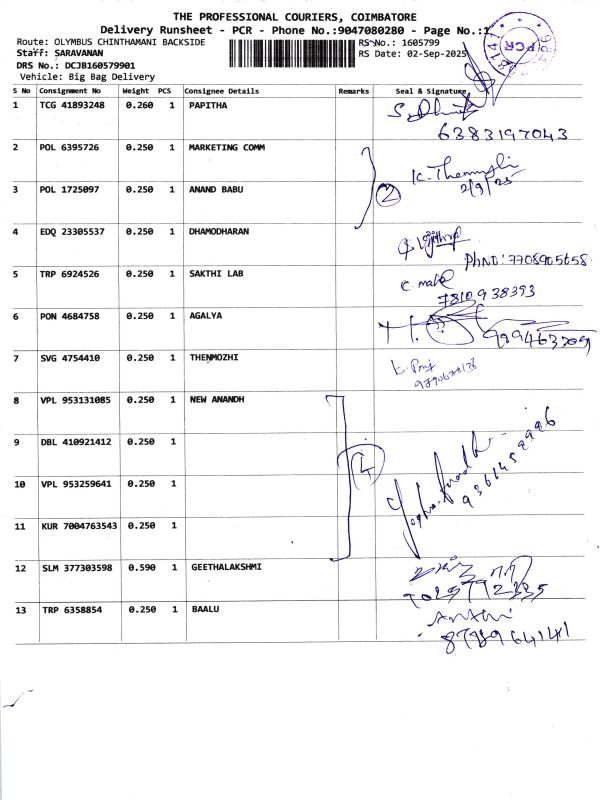 THE PROFESSIONAL COURIERS, COIMBATORE
Delivery Runsheet - PCR - Phone No.:9047080280 - Page No.:1
Route: OLYMBUS CHINTHAMANI BACKSIDE RS No.: 1605799
Staff: SARAVANAN RS Date: 02-Sep-2025
DRS No.: DCJB160579901
Vehicle: Big Bag Delivery
PCR
S No Consignment No Weight PCS Consignee Details Remarks Seal & Signature
1 TCG 41893248 0.260 1 PAPITHA
6383197043
2 POL 6395726 0.250 1 MARKETING COMM
2
2/9/25
3 POL 1725097 0.250 1 ANAND BABU
4 EDQ 23305537 0.250 1 DHAMODHARAN
PhNO: 7708905658
5 TRP 6924526 0.250 1 SAKTHI LAB
7810938393
6 PON 4684758 0.250 1 AGALYA
7 SVG 4754410 0.250 1 THENMOZHI
8 VPL 953131085 0.250 1 NEW ANANDH
9 DBL 410921412 0.250 1
4
10 VPL 953259641 0.250 1
11 KUR 7004763543 0.250 1
12 SLM 377303598 0.590 1 GEETHALAKSHMI
13 TRP 6358854 0.250 1 BAALU